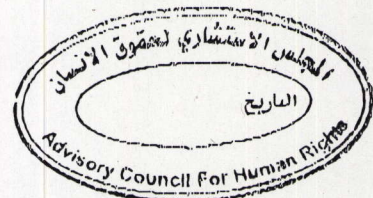 المجلس الاستشاري لحقوق الانسان
التاريخ
Advisory Council For Human Rights